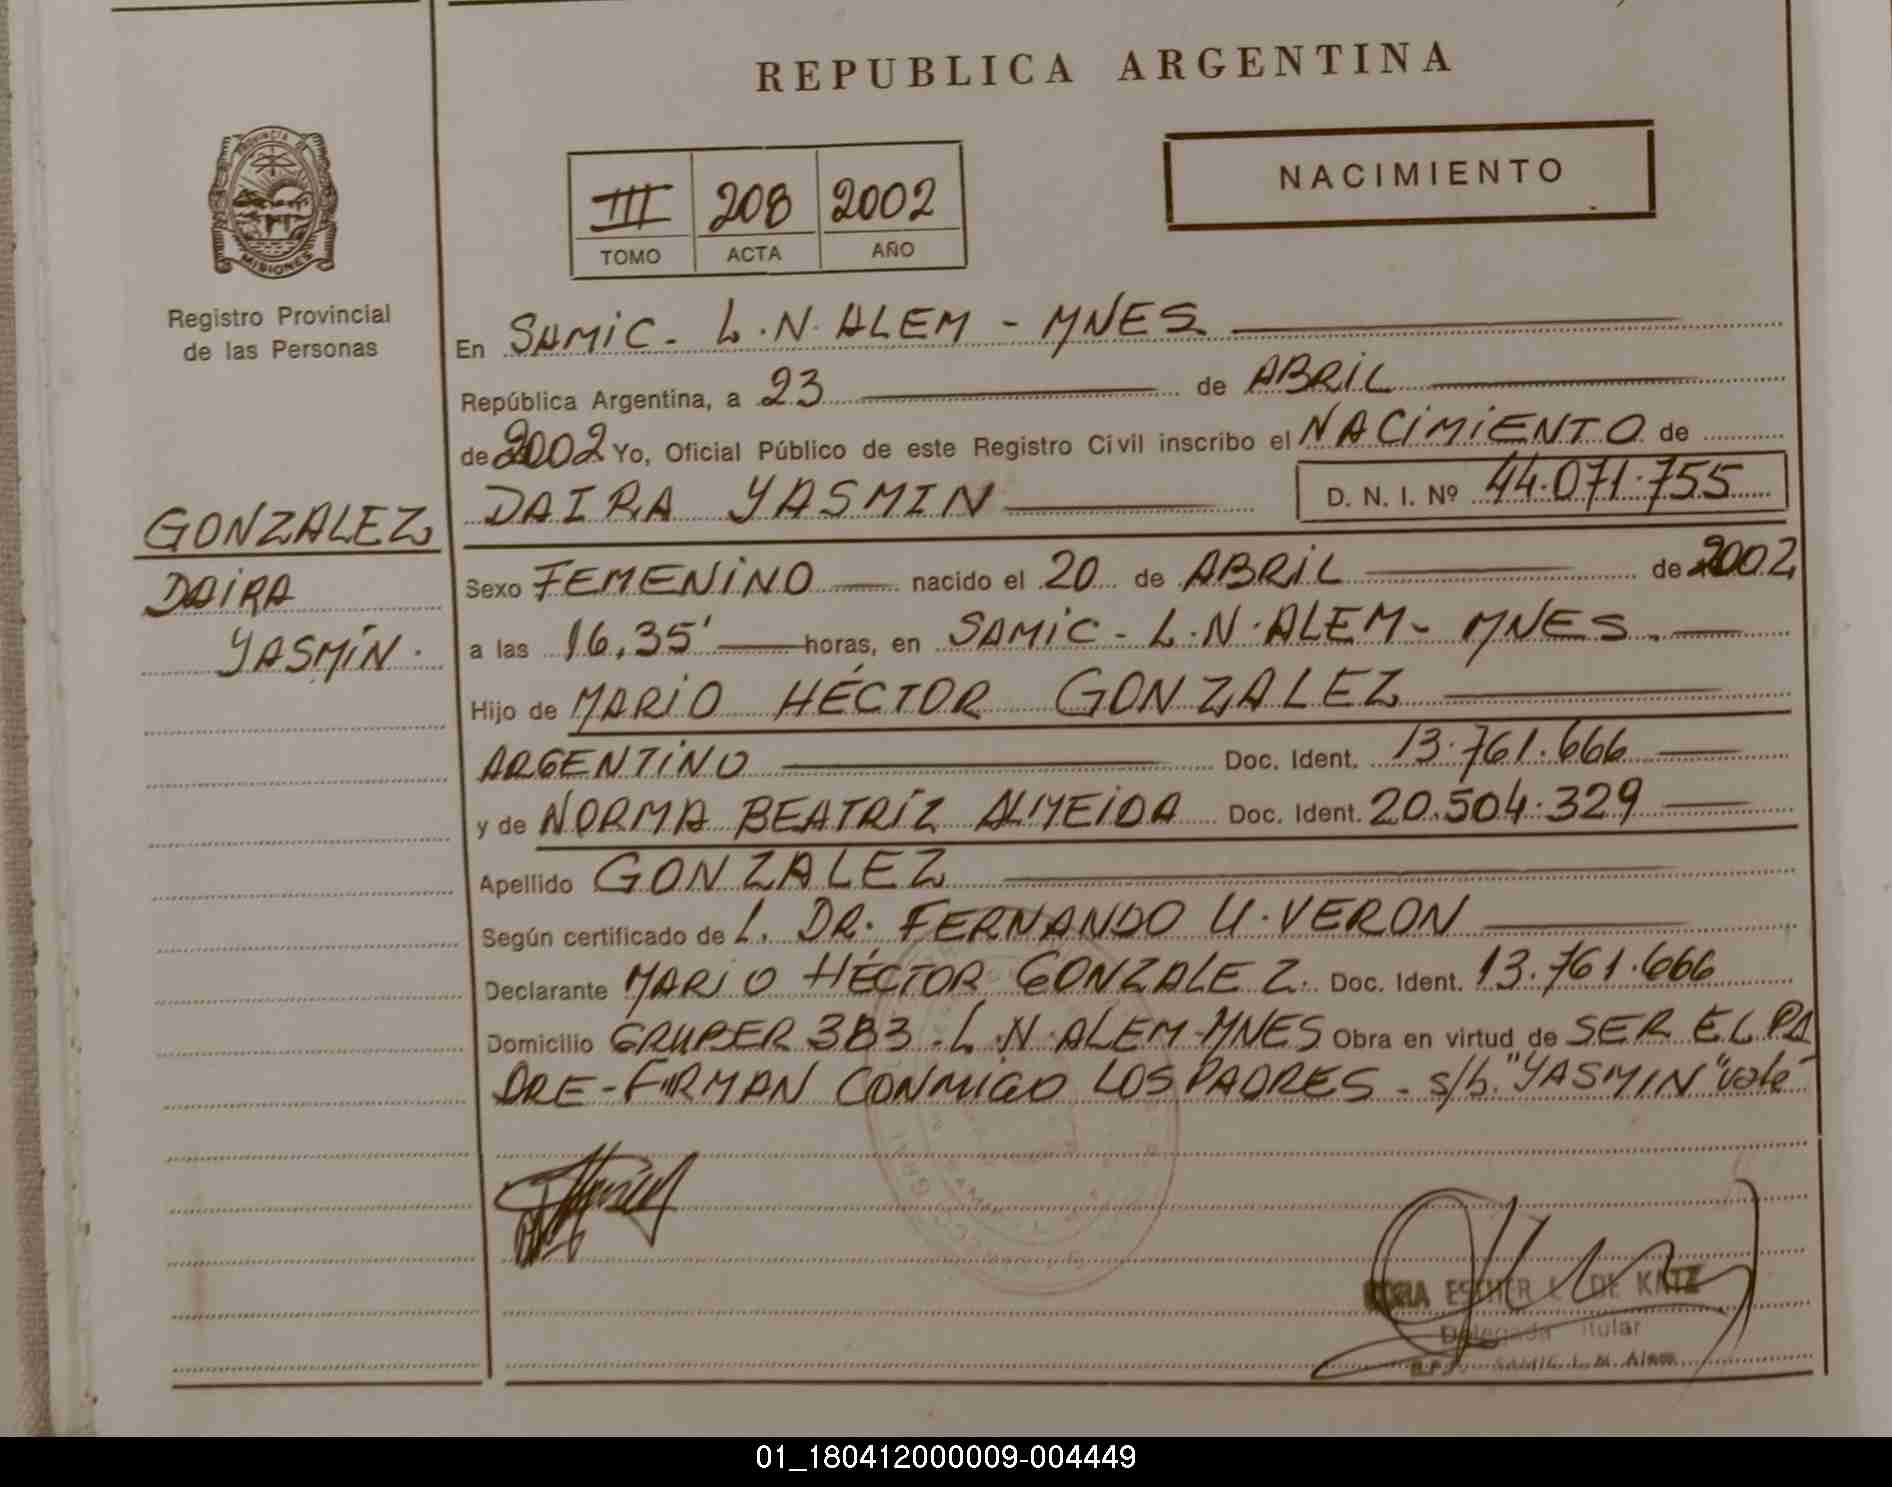 REPUBLICA ARGENTINA
PROVINCIA DE
MISIONES
Registro Provincial
de las Personas
III 208 2002
TOMO ACTA AÑO
NACIMIENTO
En SAMIC - L.N. ALEM - MNES
República Argentina, a 23 de ABRIL
de 2002 Yo, Oficial Público de este Registro Civil inscribo el NACIMIENTO de
DAIRA YASMIN D. N. I. Nº 44.071.755
GONZALEZ
DAIRA
YASMIN.
Sexo FEMENINO nacido el 20 de ABRIL de 2002
a las 16,35' horas, en SAMIC - L.N. ALEM - MNES.
Hijo de MARIO HÉCTOR GONZALEZ
ARGENTINO Doc. Ident. 13.761.666
y de NORMA BEATRIZ ALMEIDA Doc. Ident. 20.504.329
Apellido GONZALEZ
Según certificado de L. DR. FERNANDO U. VERON
Declarante MARIO HÉCTOR GONZALEZ. Doc. Ident. 13.761.666
Domicilio GRUBER 383 - L.N. ALEM - MNES Obra en virtud de SER EL PA
DRE - FIRMAN CONMIGO LOS PADRES - s/b. "YASMIN" vale
ESTHER L. DE KATZ
Delegada Titular
SAMIC L. N. Alem
01_180412000009-004449